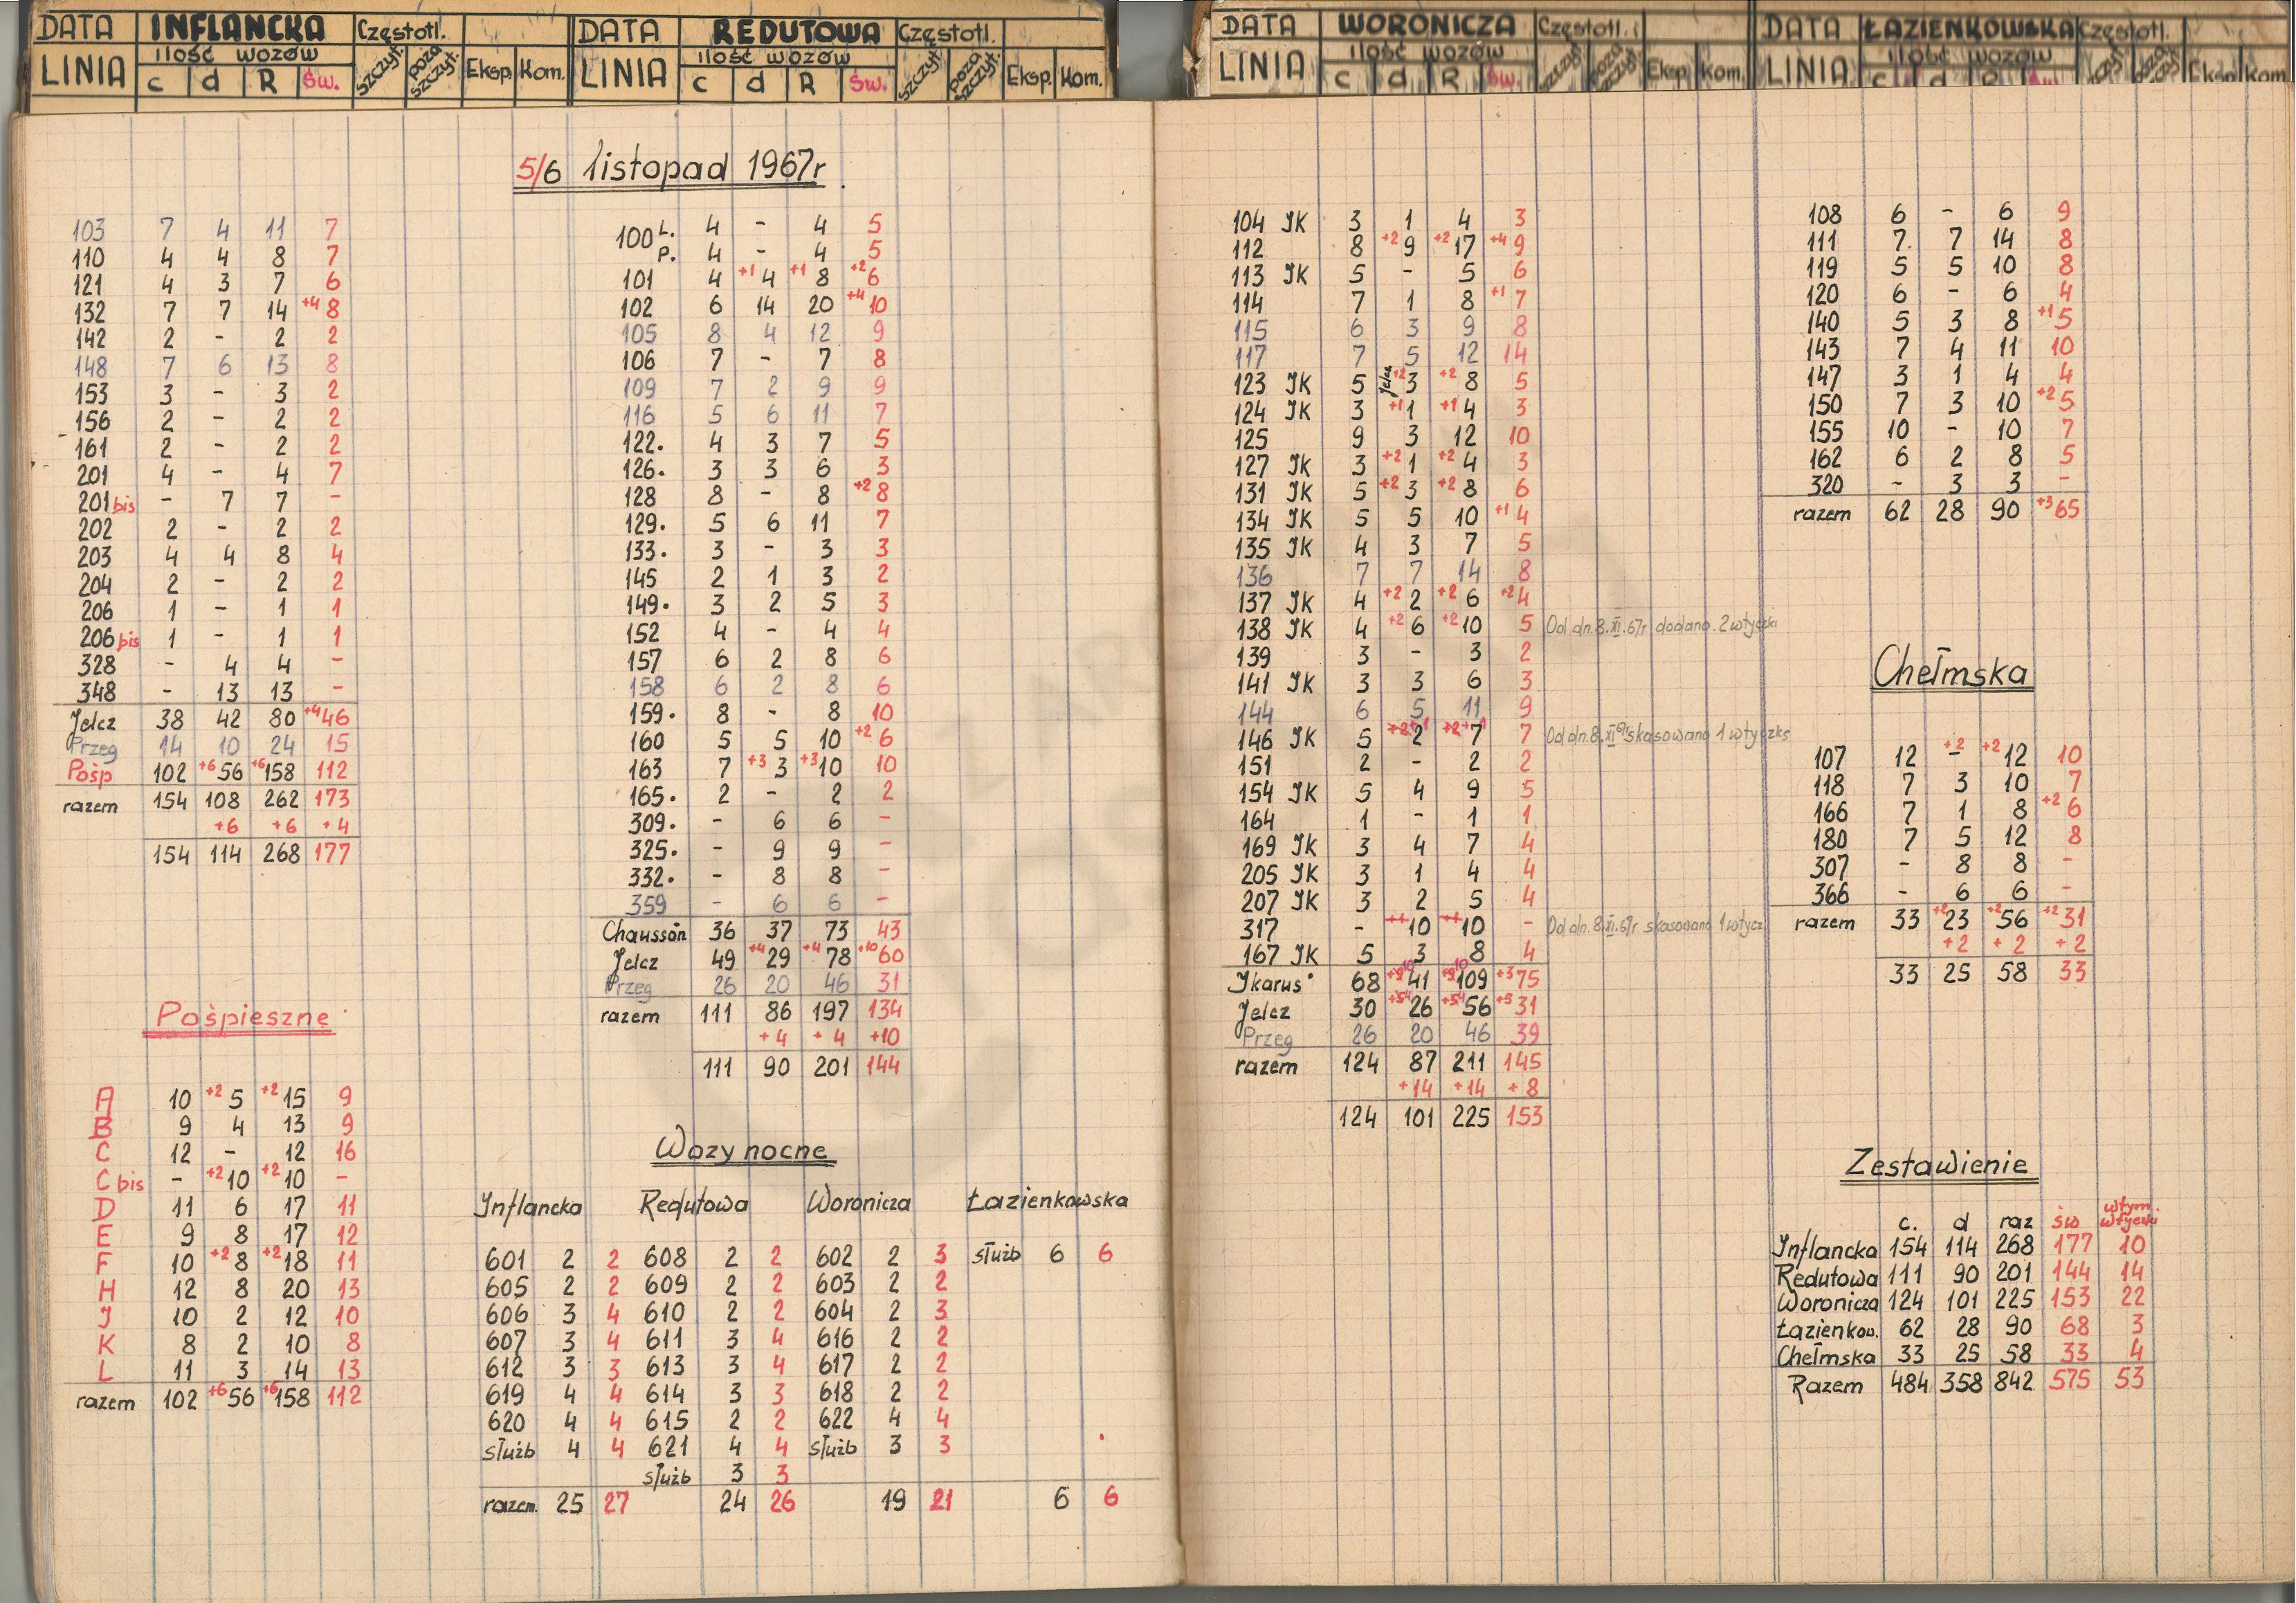 DATA INFLANCKA Częstotl.
LINIA ilość wozów c d R Św. szczyt. poza szczyt. Eksp. Kom.
DATA REDUTOWA Częstotl.
LINIA ilość wozów c d R Św. szczyt. poza szczyt. Eksp. Kom.
DATA WORONICZA Częstotl.
LINIA ilość wozów c d R Św. Eksp. Kom.
DATA ŁAZIENKOWSKA Częstotl.
LINIA ilość wozów c d R Eksp. Kom.
5/6 listopad 1967r.
103 7 4 11 7
110 4 4 8 7
121 4 3 7 6
132 7 7 14 +4 8
142 2 - 2 2
148 7 6 13 8
153 3 - 3 2
156 2 - 2 2
161 2 - 2 2
201 4 - 4 7
201 bis - 7 7 -
202 2 - 2 2
203 4 4 8 4
204 2 - 2 2
206 1 - 1 1
206 bis 1 - 1 1
328 - 4 4 -
348 - 13 13 -
Jelcz 38 42 80 +4 46
Przeg 14 10 24 15
Pośp 102 +6 56 +6 158 112
razem 154 108 262 173
+6 +6 +4
154 114 268 177
Pośpieszne
A 10 +2 5 +2 15 9
B 9 4 13 9
C 12 - 12 16
C bis - +2 10 +2 10 -
D 11 6 17 11
E 9 8 17 12
F 10 +2 8 +2 18 11
H 12 8 20 13
J 10 2 12 10
K 8 2 10 8
L 11 3 14 13
razem 102 +6 56 +6 158 112
100 L. 4 - 4 5
P. 4 - 4 5
101 4 +1 4 +1 8 +2 6
102 6 14 20 +4 10
105 8 4 12 9
106 7 - 7 8
109 7 2 9 9
116 5 6 11 7
122. 4 3 7 5
126. 3 3 6 3
128 8 - 8 +2 8
129. 5 6 11 7
133. 3 - 3 3
145 2 1 3 2
149. 3 2 5 3
152 4 - 4 4
157 6 2 8 6
158 6 2 8 6
159. 8 - 8 10
160 5 5 10 +2 6
163 7 +3 3 +3 10 10
165. 2 - 2 2
309. - 6 6 -
325. - 9 9 -
332. - 8 8 -
359 - 6 6 -
Chausson 36 37 73 43
Jelcz 49 +4 29 +4 78 +10 60
Przeg 26 20 46 31
razem 111 86 197 134
+4 +4 +10
111 90 201 144
Wozy nocne
Inflancka Redutowa Woronicza Łazienkowska
601 2 2 608 2 2 602 2 3 służb 6 6
605 2 2 609 2 2 603 2 2
606 3 4 610 2 2 604 2 3
607 3 4 611 3 4 616 2 2
612 3 3 613 3 4 617 2 2
619 4 4 614 3 3 618 2 2
620 4 4 615 2 2 622 4 4
służb 4 4 621 4 4 służb 3 3
służb 3 3
razem. 25 27 24 26 19 21 6 6
104 JK 3 1 4 3
112 8 +2 9 +2 17 +4 9
113 JK 5 - 5 6
114 7 1 8 +1 7
115 6 3 9 8
117 7 5 12 14
123 JK 5 Jelcz +2 3 +2 8 5
124 JK 3 +1 1 +1 4 3
125 9 3 12 10
127 JK 3 +2 1 +2 4 3
131 JK 5 +2 3 +2 8 6
134 JK 5 5 10 +1 4
135 JK 4 3 7 5
136 7 7 14 8
137 JK 4 +2 2 +2 6 +2 4
138 JK 4 +2 6 +2 10 5 Od dn. 8.XI.67r dodano 2 wtyczki
139 3 - 3 2
141 JK 3 3 6 3
144 6 5 11 9
146 JK 5 +2 +1 2 +2 +1 7 7 Od dn. 8.XI 67r skasowano 1 wtyczkę
151 2 - 2 2
154 JK 5 4 9 5
164 1 - 1 1
169 JK 3 4 7 4
205 JK 3 1 4 4
207 JK 3 2 5 4
317 - +1 10 +1 10 - Od dn. 8.XI.67r skasowano 1 wtycz
167 JK 5 3 8 4
Ikarus 68 +9 10 41 +9 10 109 +3 75
Jelcz 30 +5 4 26 +5 4 56 +5 31
Przeg 26 20 46 39
razem 124 87 211 145
+14 +14 +8
124 101 225 153
108 6 - 6 9
111 7. 7 14 8
119 5 5 10 8
120 6 - 6 4
140 5 3 8 +1 5
143 7 4 11 10
147 3 1 4 4
150 7 3 10 +2 5
155 10 - 10 7
162 6 2 8 5
320 - 3 3 -
razem 62 28 90 +3 65
Chełmska
107 12 +2 - +2 12 10
118 7 3 10 7
166 7 1 8 +2 6
180 7 5 12 8
307 - 8 8 -
366 - 6 6 -
razem 33 +2 23 +2 56 +2 31
+2 +2 +2
33 25 58 33
Zestawienie
c. d raz św wtym. wtyczki
Inflancka 154 114 268 177 10
Redutowa 111 90 201 144 14
Woronicza 124 101 225 153 22
Łazienkow. 62 28 90 68 3
Chełmska 33 25 58 33 4
Razem 484 358 842 575 53